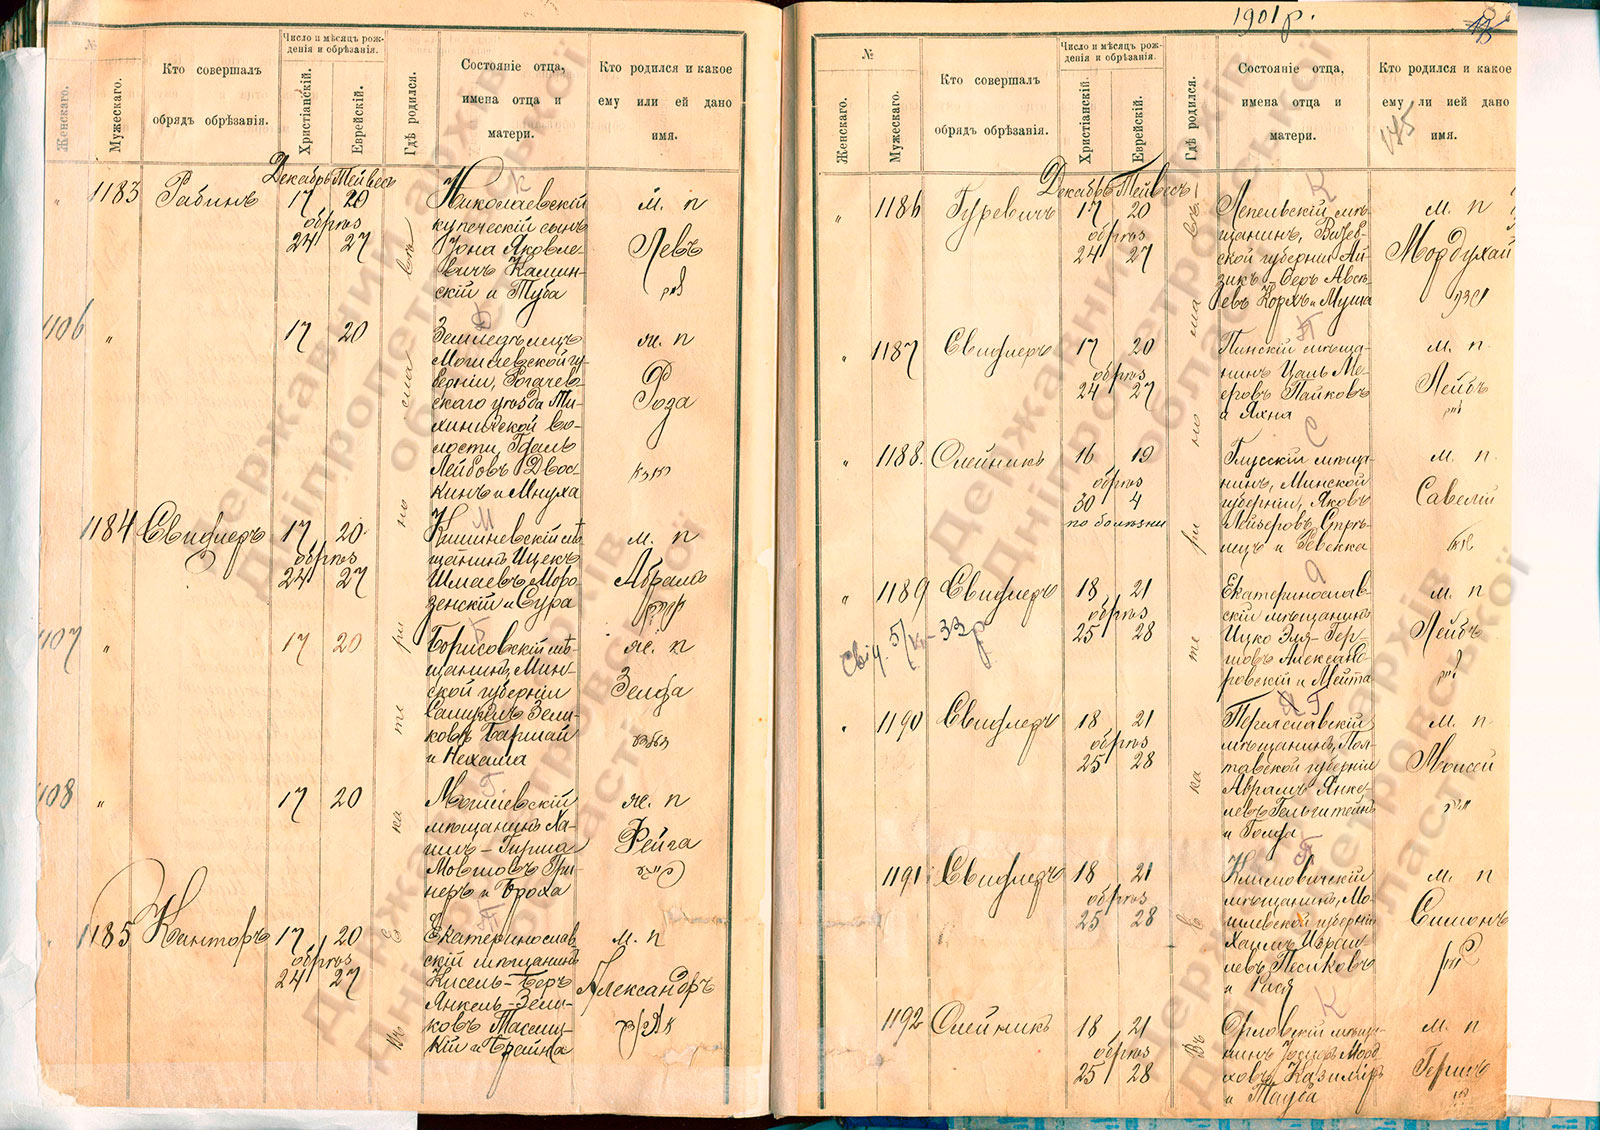 №
Женскаго.
Мужескаго.
Кто совершалъ
обрядъ обрѣзанія.
Число и мѣсяцъ рож-
денія и обрѣзанія.
Христіанскій.
Еврейскій.
Гдѣ родился.
Состояніе отца,
имена отца и
матери.
Кто родился и какое
ему или ей дано
имя.
Декабрь Тейвесъ
1183 Рабинъ 17 20
обрѣз
24 27
Николаевскій
купеческій сынъ
Іона Яковле-
вичъ Камин-
скій и Туба
м. п
Левъ
1106 " 17 20
Земледѣлецъ
Могилевской гу-
берніи, Рогачев-
скаго уѣзда Ти-
хиничской во-
лости, Гдаль
Лейбовъ Двос-
кинъ и Мнуха
ж. п
Роза
1184 Свидлеръ 17 20
обрѣз
24 27
Кишиневскій мѣ-
щанинъ Ицекъ
Шмаевъ Моро-
зенскій и Сура
м. п
Абрамъ
1107 " 17 20
Борисовскій мѣ-
щанинъ, Мин-
ской губерніи
Самуилъ Зели-
ковъ Баршай
и Нехама
ж. п
Зелда
1108 " 17 20
Могилевскій
мѣщанинъ Ха-
имъ-Гирша
Мовшовъ Гри-
неръ и Броха
ж. п
Фейга
1185 Канторъ 17 20
обрѣз
24 27
Екатеринослав-
скій мѣщанинъ
Кисель-Беръ
Янкель-Зели-
ковъ
и Брейна
м. п
Александръ
Въ Екатеринославѣ
1901 р.
№
Женскаго.
Мужескаго.
Кто совершалъ
обрядъ обрѣзанія.
Число и мѣсяцъ рож-
денія и обрѣзанія.
Христіанскій.
Еврейскій.
Гдѣ родился.
Состояніе отца,
имена отца и
матери.
Кто родился и какое
ему ли ией дано
имя.
Декабрь Тейвесъ
" 1186 Гуревичъ 17 20
обрѣз
24 27
Лепельскій мѣ-
щанинъ, Витеб-
ской губерніи Ай-
зикъ-Беръ
Корхъ и Муша
м. п
Мордухай
" 1187 Свидлеръ 17 20
обрѣз
24 27
Пинскій мѣща-
нинъ Цаль Ме-
еровъ Пайковъ
и Яхна
м. п.
Лейбъ
" 1188. Олейникъ 16 19
обрѣз
30 4
по болѣзни
Глусскій мѣща-
нинъ, Минской
губерніи, Яковъ
Лейзеровъ Стрѣ-
лецъ и Ревекка
м. п.
Савелій
" 1189 Свидлеръ 18 21
обрѣз
25 28
Екатеринослав-
скій мѣщанинъ
Ицко Эля-Гер-
шовъ Александ-
ровскій и Мейта
м. п
Лейбъ
1190 Свидлеръ 18 21
обрѣз
25 28
Переяславскій
мѣщанинъ, Пол-
тавской губерніи
Абрамъ Янке-
левъ Гельштейнъ
и Голда
м. п.
Моисей
1191 Свидлеръ 18 21
обрѣз
25 28
Климовичскій
мѣщанинъ, Мо-
гилевской губерніи
Хаимъ Изрои-
левъ Песиковъ
и Рася
м. п
Симонъ
1192 Олейникъ 18 21
обрѣз
25 28
Орловскій мѣща-
нинъ Іосифъ Морд-
ховъ Казимиръ
и Тауба
м. п
Гершъ
Въ Екатеринославѣ
Державний архів
Дніпропетровської
області